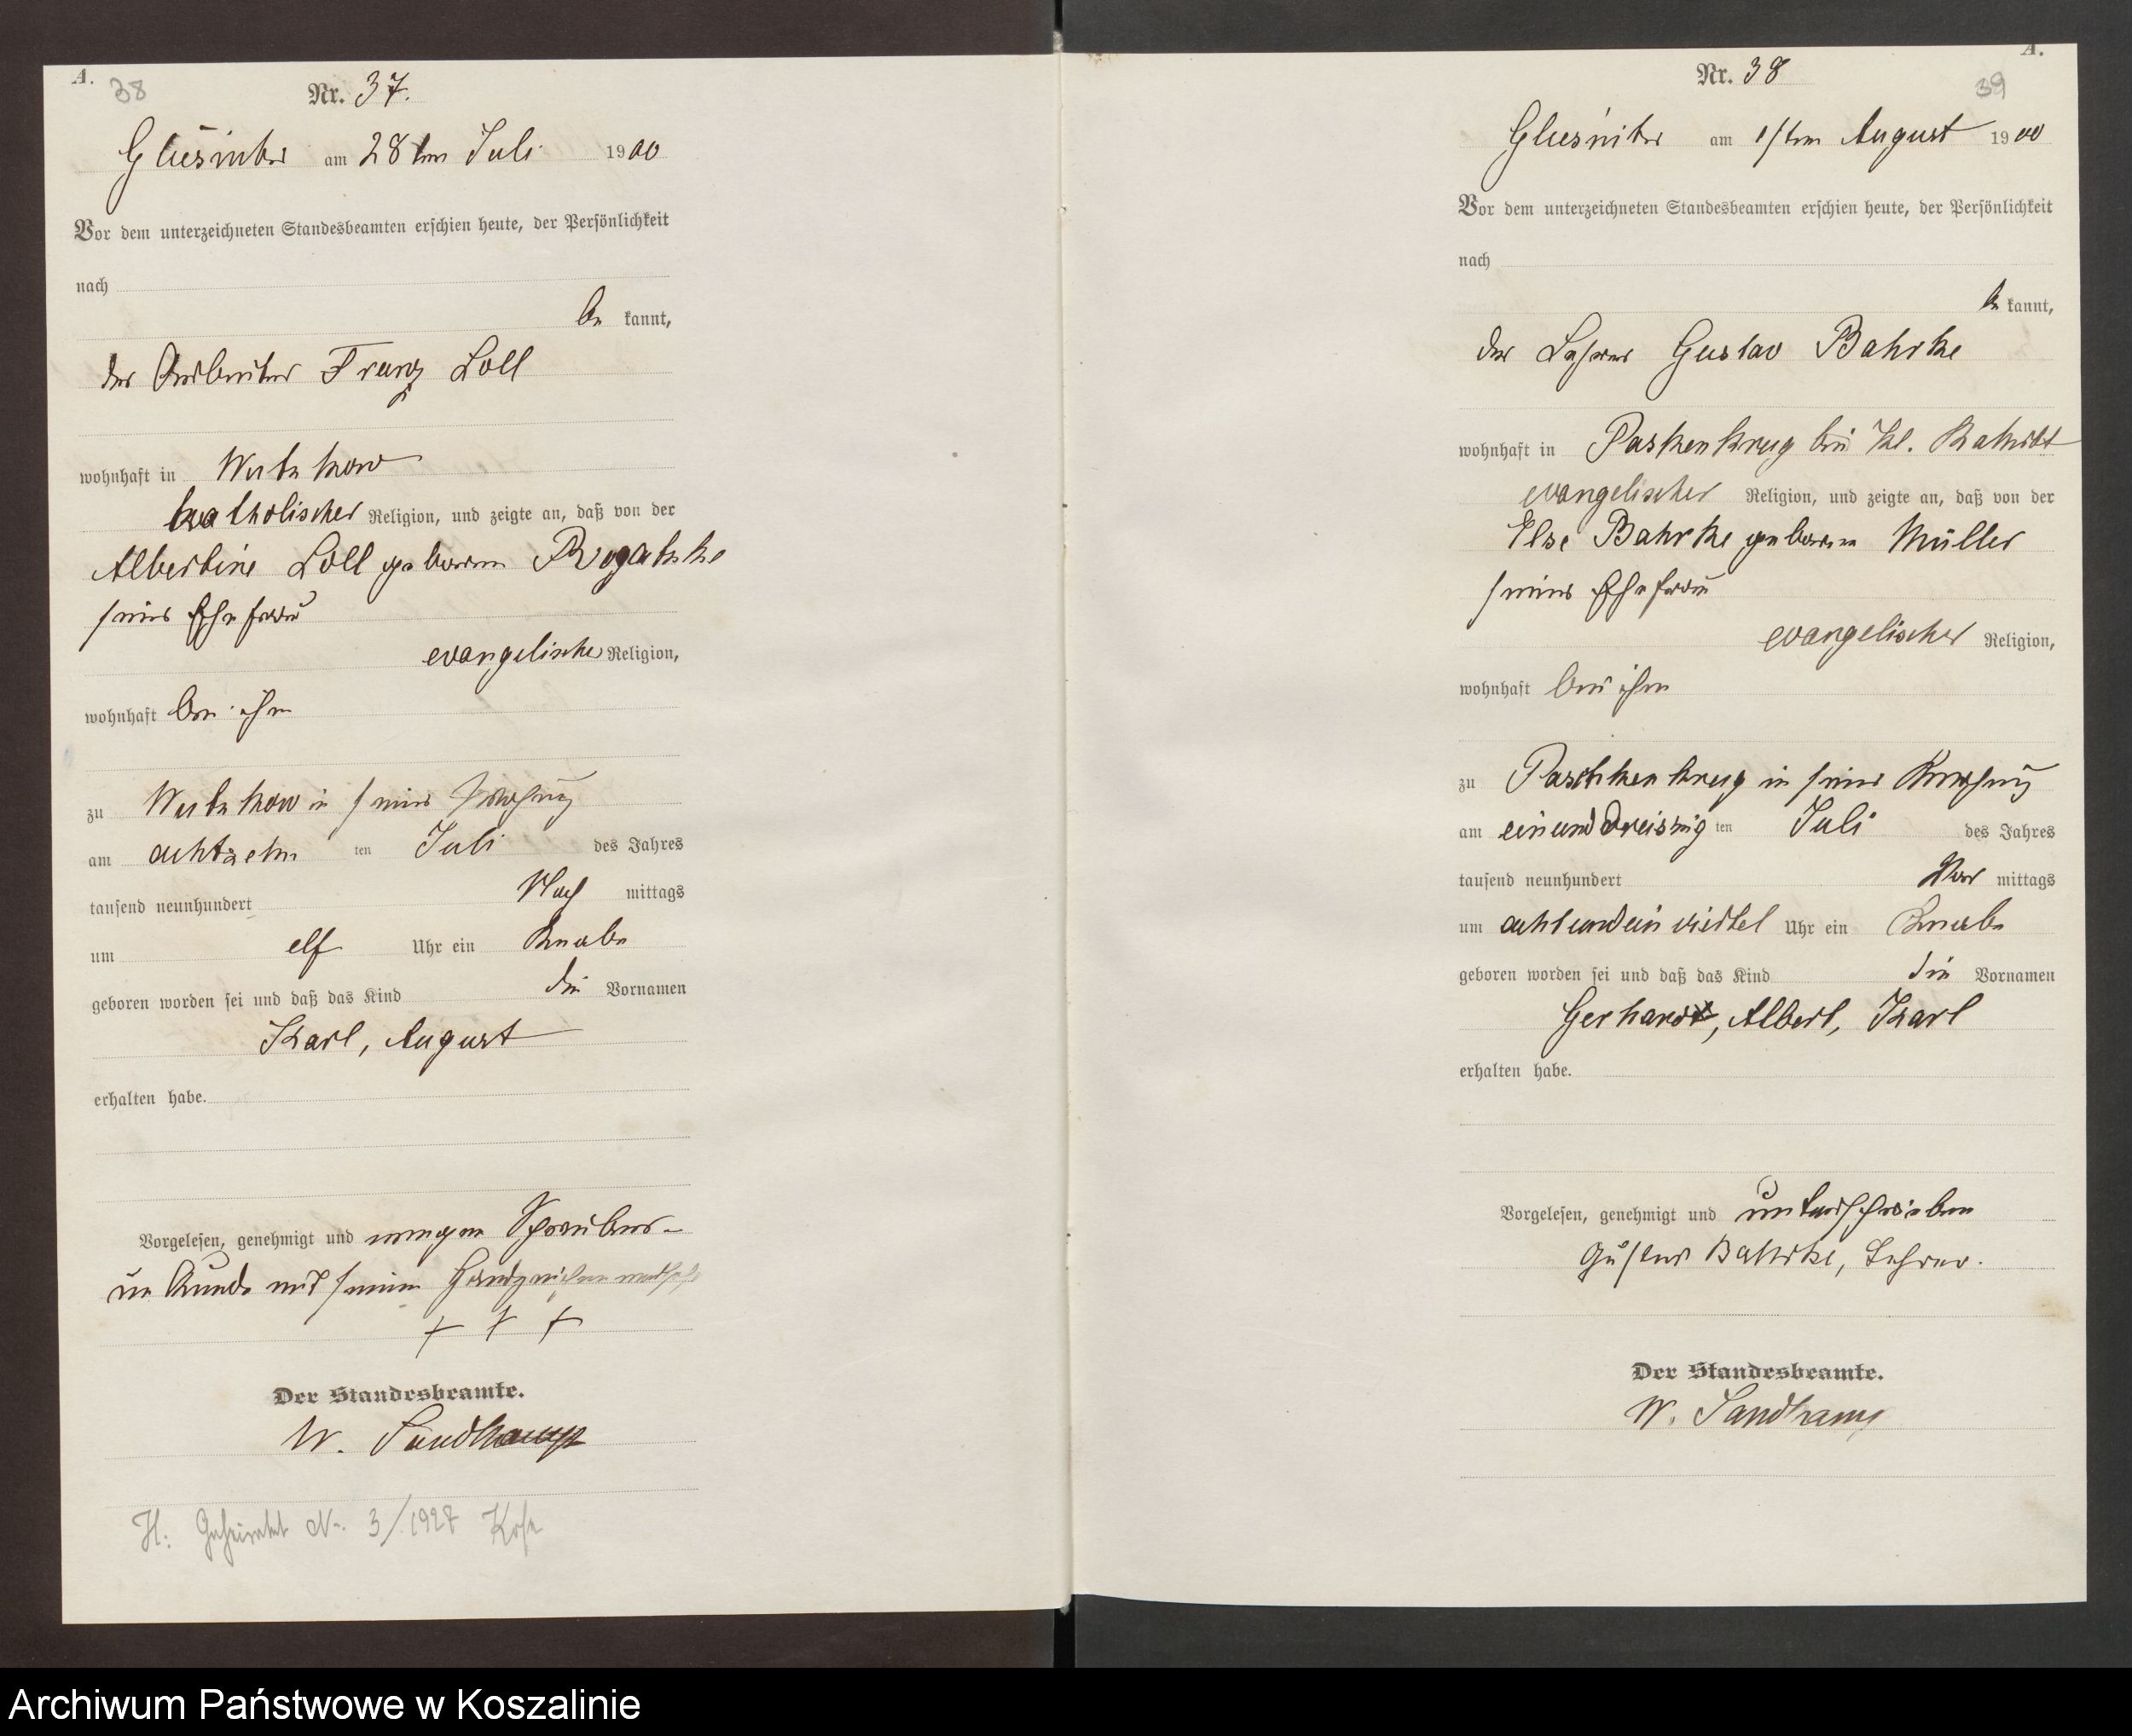 A.
38
Nr. 37.
Glüsnitz am 28ten Juli 1900
Vor dem unterzeichneten Standesbeamten erschien heute, der Persönlichkeit
nach
be kannt,
der Arbeiter Franz Loll
wohnhaft in Wutzkow
katholischer Religion, und zeigte an, daß von der
Albertine Loll geboren Rogatzke
seiner Ehefrau
evangelischer Religion,
wohnhaft bei ihm
zu Wutzkow in seiner Wohnung
am achtzehn ten Juli des Jahres
tausend neunhundert Nach mittags
um elf Uhr ein Knabe
geboren worden sei und daß das Kind die Vornamen
Karl, August
erhalten habe.
Vorgelesen, genehmigt und wegen Schreibens-
unkunde mit seinem Handzeichen versehen
+ + +
Der Standesbeamte.
W. Sandkamp
H: Geheiratet Nr. 3/1927 Kose
A.
Nr. 38
39
Gluśnitz am 1sten August 1900
Vor dem unterzeichneten Standesbeamten erschien heute, der Persönlichkeit
nach
be kannt,
der Lehrer Gustav Bahrke
wohnhaft in Paskenkrug bei Kl.
evangelischer Religion, und zeigte an, daß von der
Else Bahrke geboren Müller
seiner Ehefrau
evangelischer Religion,
wohnhaft bei ihm
zu Paschkenkrug in seiner Wohnung
am einunddreiszig ten Juli des Jahres
tausend neunhundert Vor mittags
um achtundein viertel Uhr ein Knabe
geboren worden sei und daß das Kind die Vornamen
Gerhard, Albert, Karl
erhalten habe.
Vorgelesen, genehmigt und unterschrieben
Gustav Bahrke, Lehrer.
Der Standesbeamte.
W. Sandkamp
Archiwum Państwowe w Koszalinie